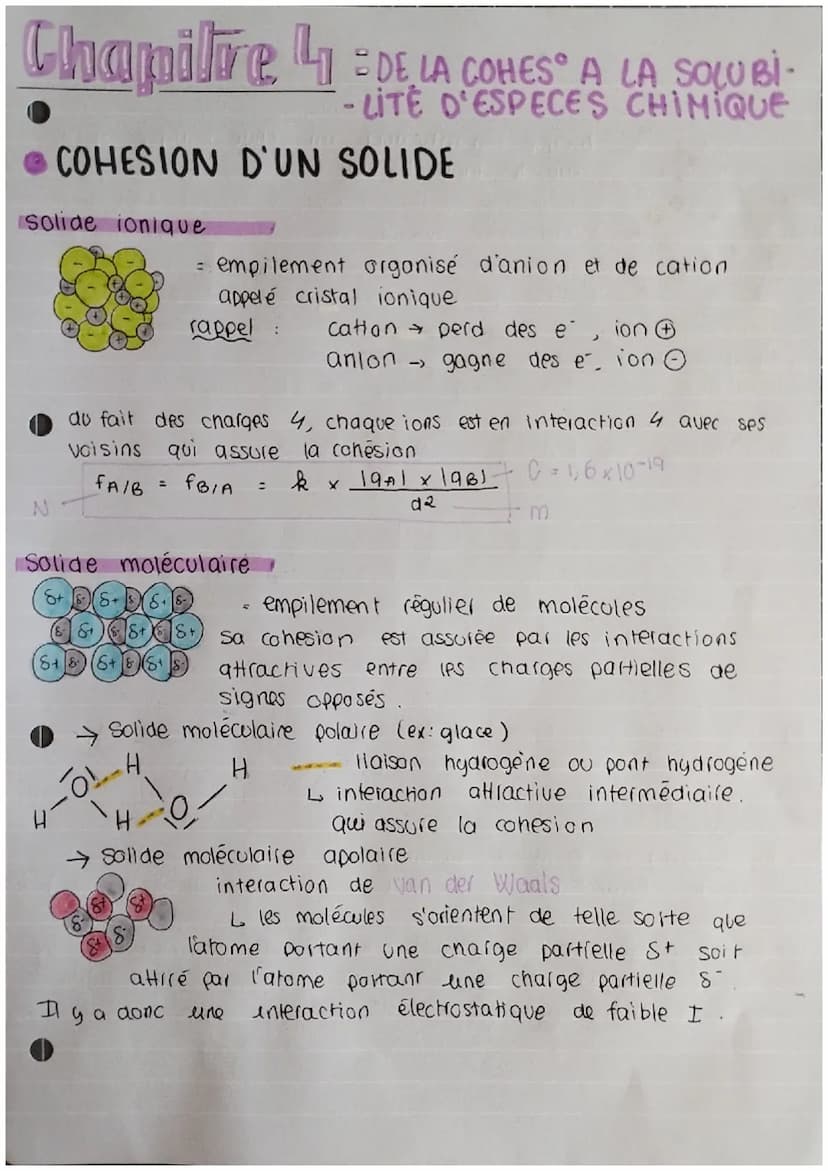 Chapitre 4 : DE LA COHES° A LA SOLUBI-
-LITÉ D'ESPECES CHIMIQUE
COHESION D'UN SOLIDE
solide ionique
= empilement organisé d'anion et de cation
appelé cristal ionique
rappel : cation → perd des e⁻, ion ⊕
anion → gagne des e⁻, ion ⊖
du fait des charges 4, chaque ions est en interaction 4 avec ses
voisins qui assure la cohésion
fA/B = fB/A = k × |qA| × |qB| C = 1,6 × 10⁻¹⁹
d2
N
m
Solide moléculaire
δ+ δ- δ+ δ- δ+ δ-
= empilement régulier de molécules
δ- δ+ δ- δ+ δ- δ+
sa cohesion est assurée par les interactions
δ+ δ- δ+ δ- δ+ δ-
attractives entre les charges partielles de
signes opposés.
→ Solide moléculaire polaire (ex: glace)
H H liaison hydrogène ou pont hydrogène
O
↳ interaction attractive intermédiaire.
H H O
qui assure la cohesion
→ Solide moléculaire apolaire
interaction de van der Waals
δ+ δ+
↳ les molécules s'orientent de telle sorte que
δ- δ+ δ-
l'atome portant une charge partielle δ+ soit
attiré par l'atome portant une charge partielle δ⁻.
Il y a donc une interaction électrostatique de faible I.